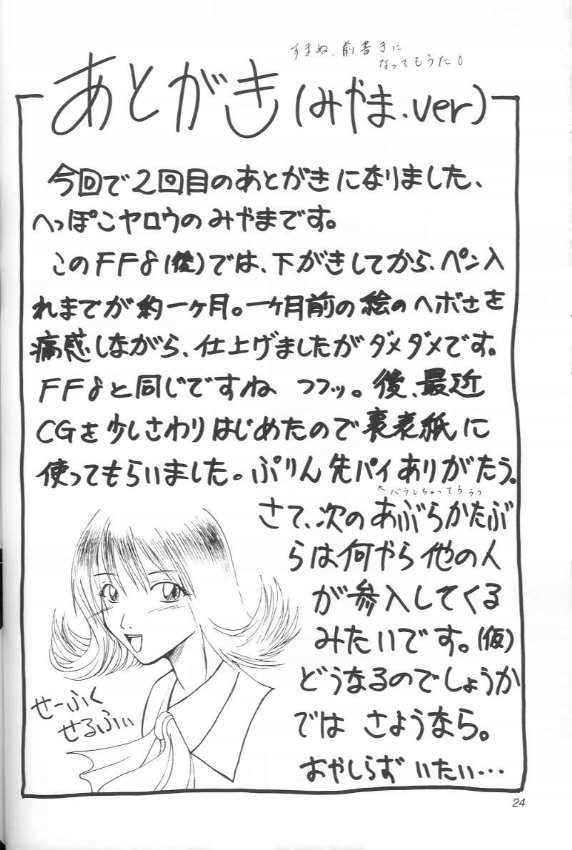 すまぬ、前書きに
なってもうた
あとがき(みやま.ver)
今回で2回目のあとがきになりました、
へっぽこヤロウのみやまです。
このFF8(仮)では、下がきしてから、ペン入
れまでが約一ヶ月。一ヶ月前の絵のヘボさを
痛感しながら、仕上げましたがダメダメです。
FF8と同じですね フフッ。後、最近
CGを少しさわりはじめたので裏表紙に
使ってもらいました。ぷりん先パイありがたう。
さて、次のあぶらかたぶ
らは何やら他の人
が参入してくる
みたいです。(仮)
どうなるのでしょうか
では さようなら。
おやしらず いたい…
せーふく
せるふぃ
24